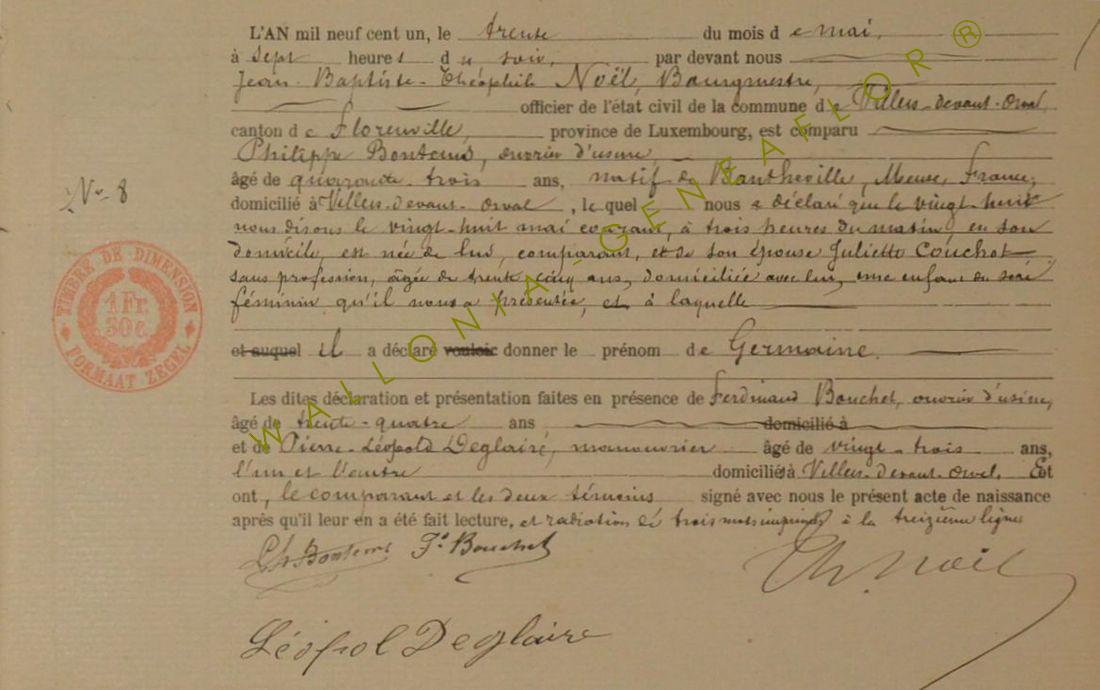 L'AN mil neuf cent un, le trente du mois de mai,
à sept heures du soir, par devant nous
Jean-Baptiste-Théophile Noël, Bourgmestre,
officier de l'état civil de la commune de Villers-devant-Orval
canton de Florenville, province de Luxembourg, est comparu
Philippe Bontems, ouvrier d'usine,
âgé de quarante-trois ans, natif de Bantheville, Meuse, France,
domicilié à Villers-devant-Orval, lequel nous a déclaré que le vingt-huit
nous disons le vingt-huit mai courant, à trois heures du matin, en son
domicile, est née de lui, comparant, et de son épouse Juliette Couchot
sans profession, âgée de trente cinq ans, domiciliée avec lui, une enfant du sexe
féminin qu'il nous a présentée, et à laquelle
et auquel il a déclaré vouloir donner le prénom de Germaine.
Les dites déclaration et présentation faites en présence de Ferdinand Bouchet, ouvrier d'usine,
âgé de trente-quatre ans domicilié à
et de Pierre-Léopold Deglaire, manouvrier âgé de vingt-trois ans,
l'un et l'autre domiciliés à Villers-devant-Orval. Et
ont, le comparant et les deux témoins signé avec nous le présent acte de naissance
après qu'il leur en a été fait lecture, et radiation de trois mots imprimés à la treizième ligne
Ph Bontems Fd Bouchet
Th. Noël
Léopol Deglaire
No 8
TIMBRE DE DIMENSION
1 Fr.
30 c.
FORMAAT ZEGEL
WALLONIA GENEAFLOR ®